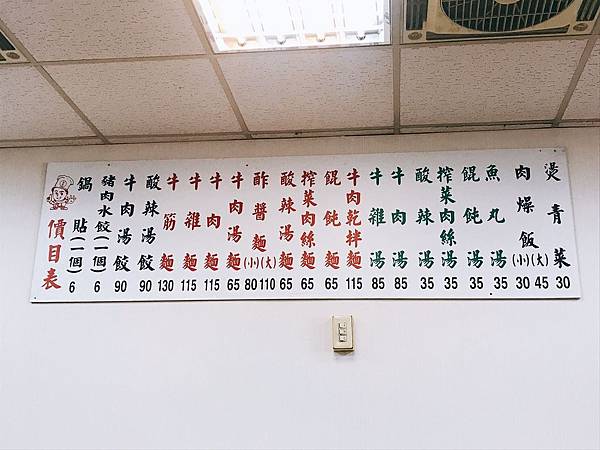 價目表
鍋貼(一個) 6
豬肉水餃(一個) 6
牛肉湯餃 90
酸辣湯餃 90
牛筋麵 130
牛雜麵 115
牛肉麵 115
牛肉湯麵 65
酢醬麵 (小)80 (大)110
酸辣湯麵 65
搾菜肉絲麵 65
餛飩麵 65
牛肉乾拌麵 115
牛雜湯 85
牛肉湯 85
酸辣湯 35
搾菜肉絲湯 35
餛飩湯 35
魚丸湯 35
肉燥飯 (小)30 (大)45
燙青菜 30